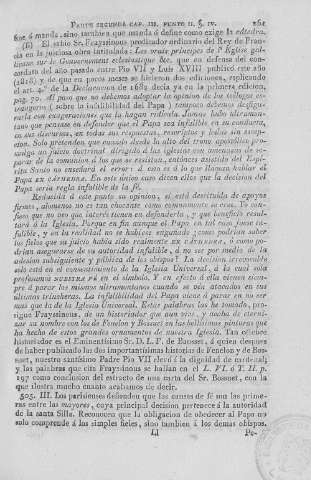 PARTE SEGUNDA CAP. III. PUNTO II. §. IV. 261
fine ó manda, sino tambien que manda ó define como exige la cátedra.
(8) El sabio Sr. Frayssinous predicador ordinario del Rey de Fran-
cia en la juiciosa obra intitulada: Les vrais principes de l'Eglise gal-
licane sur le Gouvernement ecclesiastique &c. que en defensa del con-
cordato del año pasado entre Pio VII y Luis XVIII publicó este año
(1818) y de que en pocos meses se hicieron dos ediciones, replicando
el art. 4.° de la Declaracion de 1682 decia ya en la primera edicion,
pag. 70. Al paso que no debemos adoptar la opinion de los teólogos es-
trangeros (sobre la infalibilidad del Papa) tampoco debemos desfigu-
rarla con exageraciones que la hagan ridícula. Jamas hubo ultramon-
tano que pensase en defender que el Papa sea infalible en su conducta,
en sus discursos, en todas sus respuestas, rescriptos y bulas sin escep-
cion. Solo pretenden, que cuando desde lo alto del trono apostólico pro-
nuncia un juicio doctrinal dirigido á las iglesias con amenazas de se-
parar de la comunion á los que se resistan, entonces asistido del Espí-
ritu Santo no enseñará el error: á eso es á lo que llaman hablar el
Papa EX CÁTHEDRA. En este único caso dicen ellos que la decision del
Papa seria regla infalible de la fé.
Reducida á este punto su opinion, si está destituida de apoyos
firmes, alomenos no es tan chocante como comunmente se cree. Yo con-
fieso que no veo que interés tienen en defenderla, y que beneficio resul-
tará á la Iglesia. Porque en fin aunque el Papa en tal caso fuese in-
falible, y en la realidad no se hubiese engañado ¿como podrian saber
los fieles que su juicio habia sido realmente EX CÁTHEDRA, ó como po-
drian asegurarse de su autoridad infalible, á no ser por medio de la
adesion subsiguiente y pública de los obispos? La decision irrevocable
solo está en el consentimiento de la Iglesia Universal, á la cual sola
profesamos NUESTRA FÉ en el símbolo. Y en efecto á ella vienen siem-
pre á parar los mismos ultramontanos cuando se ven atacados en sus
últimas trincheras. La infalibilidad del Papa viene á parar en no ser
mas que la de la Iglesia Universal. Estas palabras las he tomado, pro-
sigue Frayssinous, de un historiador que aun vive, y acaba de eterni-
zar su nombre con los de Fenelon y Bossuet en las bellísimas pinturas que
ha hecho de estos grandes ornamentos de nuestra Iglesia. Tan célebre
historiador es el Eminentísimo Sr. D. L. F. de Bausset, á quien despues
de haber publicado las dos importantísimas historias de Fenelon y de Bos-
suet, nuestro santísimo Padre Pio VII elevó á la dignidad de cardenal;
y las palabras que cita Frayssinous se hallan en el L. VI. ó T. II. p.
197 como conclusion del extracto de una carta del Sr. Bossuet, con la
que ilustra mucho cuanto acabamos de decir.
503. III. Los parisienses defienden que las causas de fé son las prime-
ras entre las mayores, cuya principal decision pertenece á la autoridad
de la santa Silla. Reconocen que la obligacion de obedecer al Papa no
solo comprende á los simples fieles, sino tambien á los demas obispos.
Ll Pe-